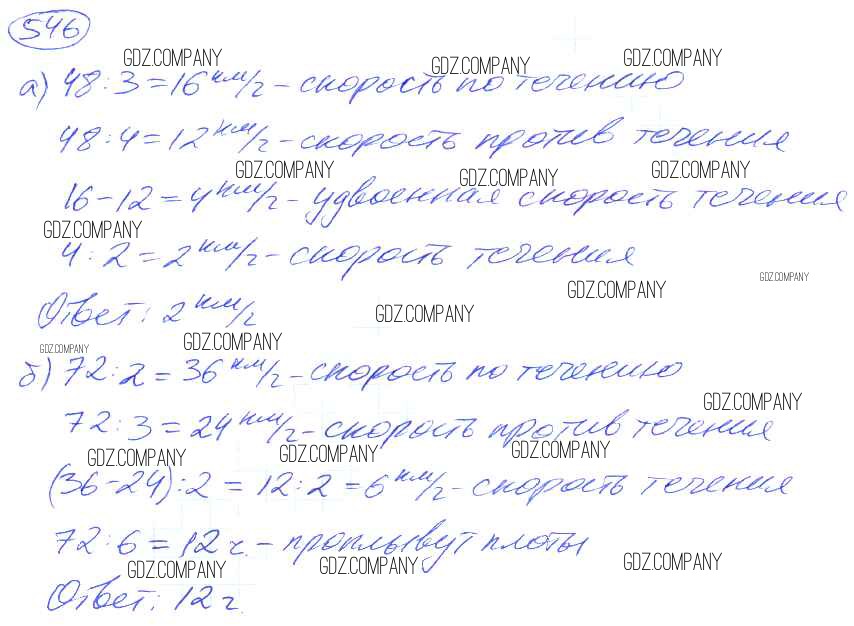 546
GDZ.COMPANY GDZ.COMPANY GDZ.COMPANY
а) 48:3=16 км/ч – скорость по течению
48:4=12 км/ч – скорость против течения
GDZ.COMPANY GDZ.COMPANY GDZ.COMPANY
16-12=4 км/ч – удвоенная скорость течения
GDZ.COMPANY
4:2=2 км/ч – скорость течения
GDZ.COMPANY GDZ.COMPANY
Ответ: 2 км/ч
GDZ.COMPANY
GDZ.COMPANY GDZ.COMPANY
б) 72:2=36 км/ч – скорость по течению
GDZ.COMPANY
72:3=24 км/ч – скорость против течения
GDZ.COMPANY GDZ.COMPANY GDZ.COMPANY
(36-24):2=12:2=6 км/ч – скорость течения
72:6=12 ч. – проплывут плоты
GDZ.COMPANY GDZ.COMPANY GDZ.COMPANY
Ответ: 12 ч.